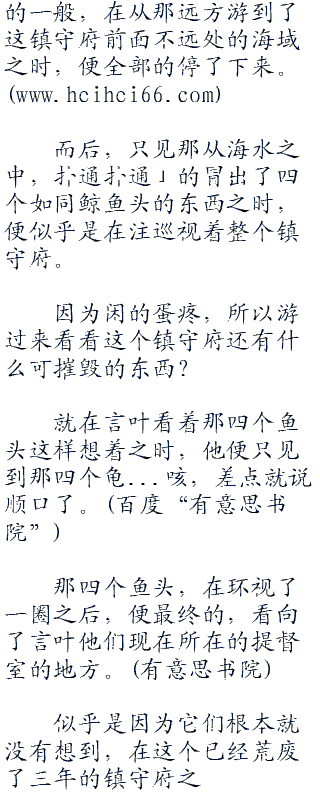 的一般，在从那远方游到了
这镇守府前面不远处的海域
之时，便全部的停了下来。
(www.hcihci66.com)
而后，只见那从海水之
中，扑通扑通」的冒出了四
个如同鲸鱼头的东西之时，
便似乎是在注巡视着整个镇
守府。
因为闲的蛋疼，所以游
过来看看这个镇守府还有什
么可摧毁的东西？
就在言叶看着那四个鱼
头这样想着之时，他便只见
到那四个龟...咳，差点就说
顺口了。(百度“有意思书
院”)
那四个鱼头，在环视了
一圈之后，便最终的，看向
了言叶他们现在所在的提督
室的地方。(有意思书院)
似乎是因为它们根本就
没有想到，在这个已经荒废
了三年的镇守府之